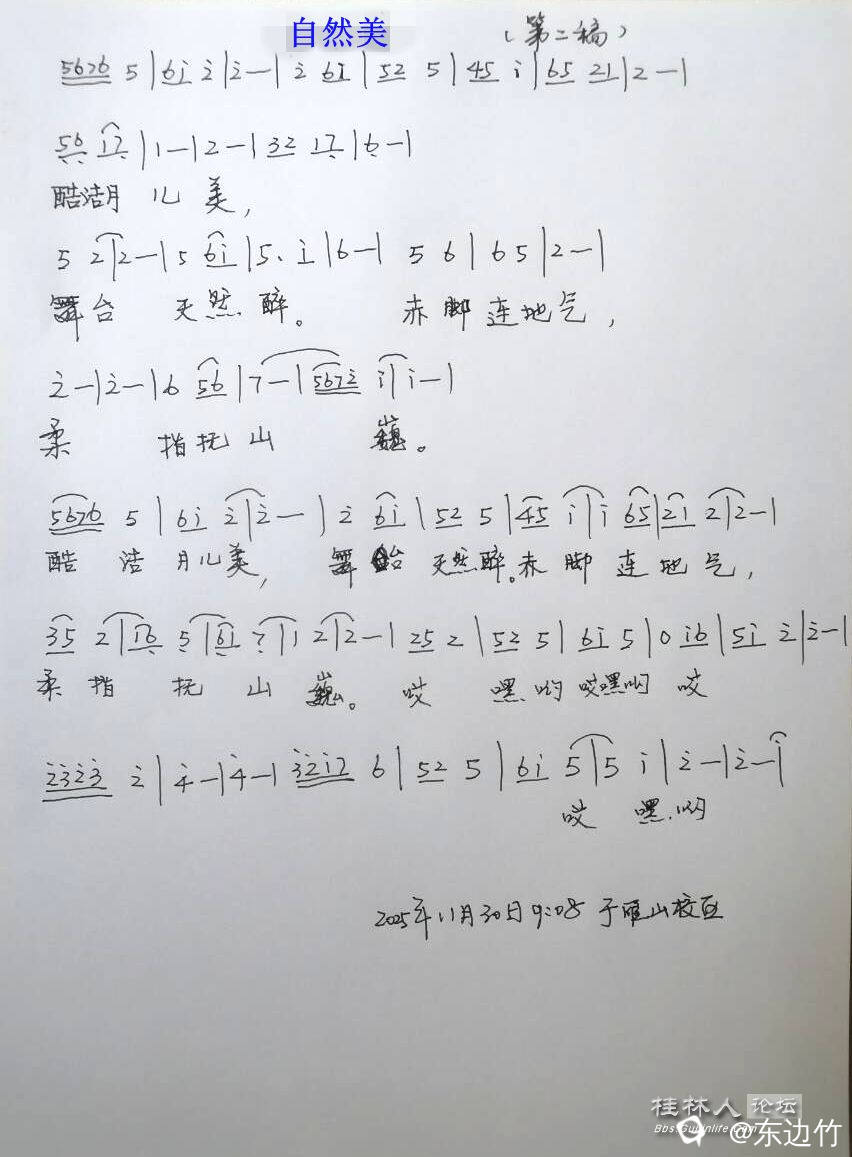 自然美
（第二稿）
5676 5 | 6i̇ 2̇ | 2̇ — | 2̇ 6i̇ | 52 5 | 45 i̇ | 65 21 | 2 — |
5̣6̣ 1̣7̣ | 1 — | 2 — | 32 17̣ | 6̣ — |
酷洁月 儿 美，
5 2 | 2 — | 5 6i̇ | 5. i̇ | 6 — | 5 6 | 65 | 2 — |
舞台 天然 醉。 赤脚连地气，
2̇ — | 2̇ — | 6 56 | 7 — | 5672̇ i̇ | i̇ — |
柔 指抚山 巍。
5676 5 | 6i̇ 2̇ | 2̇ — | 2̇ 6i̇ | 52 5 | 45 i̇ | i̇ 65 | 21 2 | 2 — |
酷 洁 月儿美， 舞 台 天然醉。赤 脚 连 地 气，
35 2 | 16̣ 5̣ | 6̣1 7̣ | 1 2 | 2 — | 25 2 | 52 5 | 6i̇ 5 | 0 i̇6 | 5i̇ 2̇ | 2̇ — |
柔 指 抚 山 巍。 哎 嘿 哟 哎嘿哟 哎
2̇3̇2̇3̇ 2̇ | 4̇ — | 4̇ — | 3̇2̇i̇7 6 | 52 5 | 6i̇ 5 | 5 i̇ | 2̇ — | 2̇ — |
哎 嘿.哟
2025年11月30日9:08 于雁山校区
桂林人论坛
Bbs.Guilinlife.Com
@东边竹